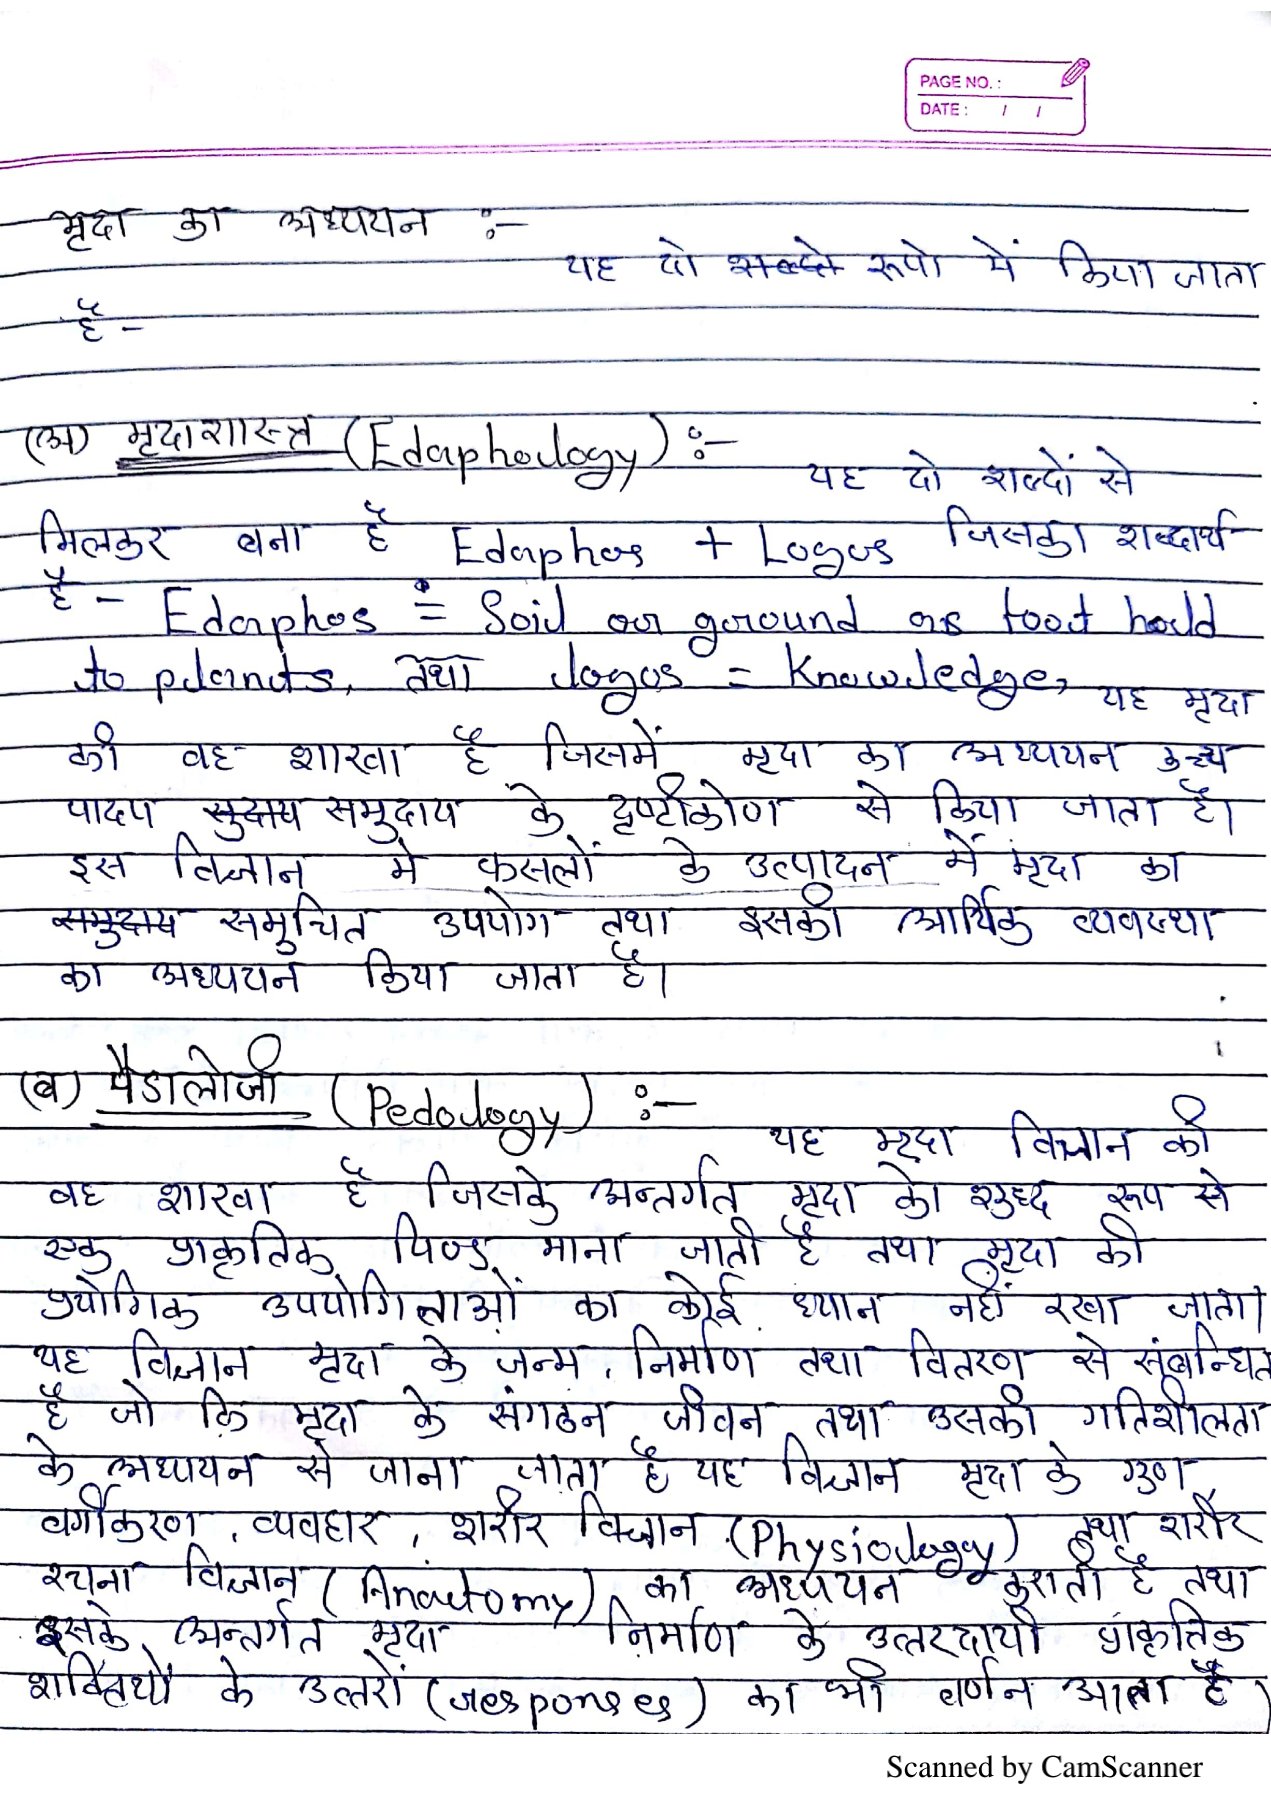 PAGE NO. :
DATE : / /
मृदा का अध्ययन :-
यह दो शब्दो रूपो में किया जाता
है -
(अ) मृदाशास्त्र (Edaphology) :-
यह दो शब्दों से
मिलकर बना है Edaphos + Logos जिसका शब्दार्थ
है - Edaphos = Soil or ground as foot hold
to plants, तथा logos = Knowledge, यह मृदा
की वह शाखा है जिसमें मृदा का अध्ययन उच्च
पादप समुदाय के दृष्टीकोण से किया जाता है।
इस विज्ञान मे फसलों के उत्पादन में मृदा का
समुदाय समुचित उपयोग तथा इसकी आर्थिक व्यवस्था
का अध्ययन किया जाता है।
(ब) पैडालोजी (Pedology) :-
यह मृदा विज्ञान की
वह शाखा है जिसके अन्तर्गत मृदा को शुध्द रूप से
एक प्राकृतिक पिण्ड माना जाती है तथा मृदा की
प्रयोगिक उपयोगिताओं का कोई ध्यान नहीं रखा जाता।
यह विज्ञान मृदा के जन्म, निर्माण तथा वितरण से संबन्धित
है जो कि मृदा के संगठन जीवन तथा उसकी गतिशीलता
के अध्ययन से जाना जाता है यह विज्ञान मृदा के गुण,
वर्गीकरण, व्यवहार, शरीर विज्ञान (Physiology) तथा शरीर
रचना विज्ञान (Anatomy) का अध्ययन कराती है तथा
इसके अन्तर्गत मृदा निर्माण के उत्तरदायी प्राकृतिक
शक्तियों के उत्तरों (responses) का भी वर्णन आता है।
Scanned by CamScanner